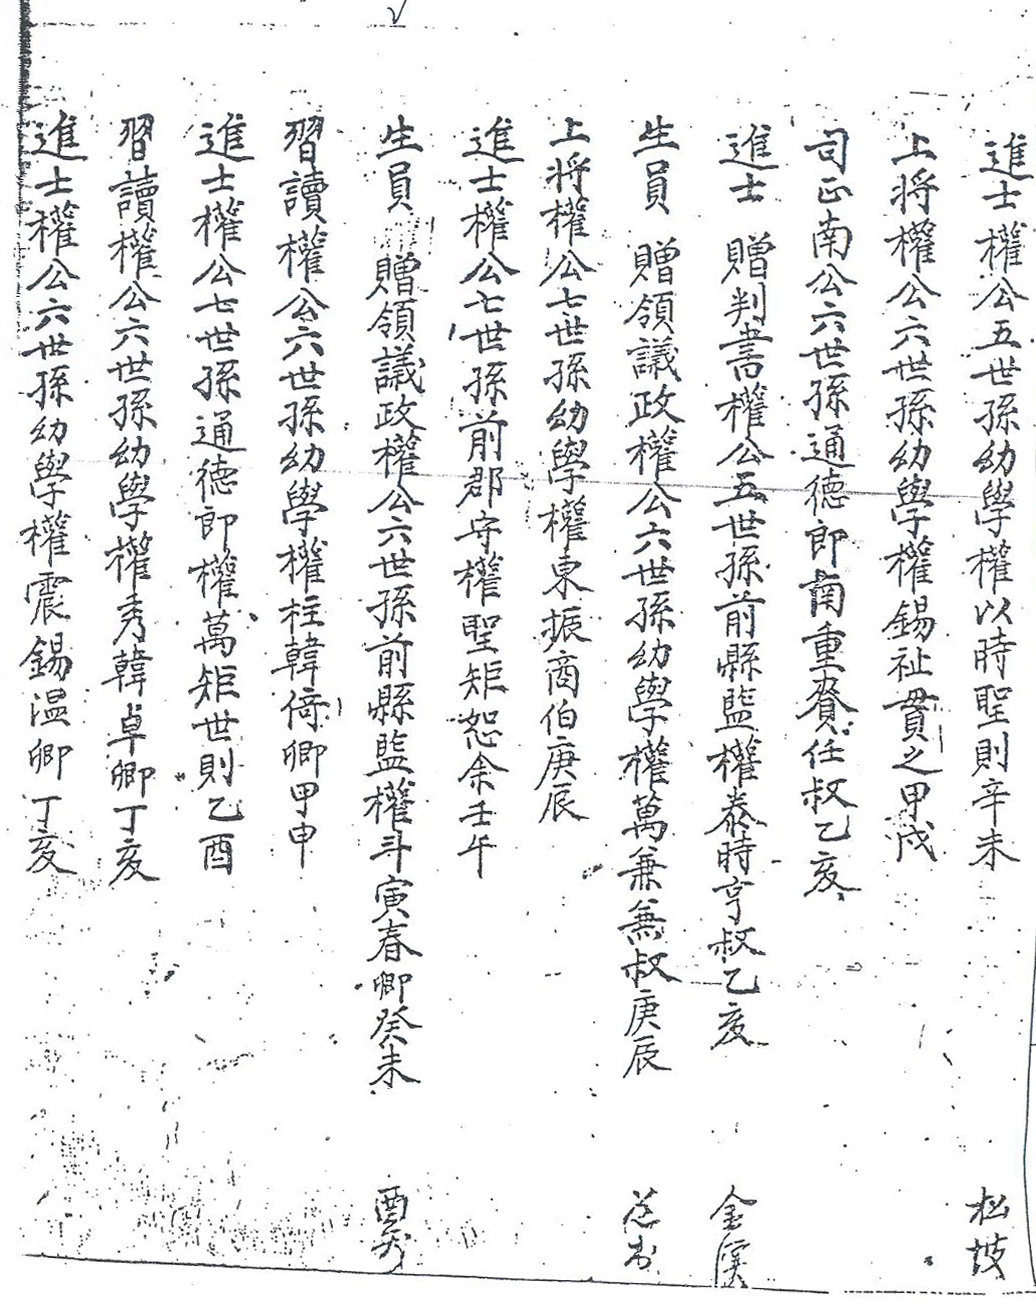 進士權公五世孫幼學權以時聖則辛未 松坡
上將權公六世孫幼學權錫祉貫之甲戌
司正南公六世孫通德郎南重賚任叔乙亥
進士 贈判書權公五世孫前縣監權泰時亨叔乙亥 金溪
生員 贈領議政權公六世孫幼學權萬兼兼叔庚辰
上將權公七世孫幼學權東振商伯庚辰
進士權公七世孫前郡守權聖矩恕余壬午
生員 贈領議政權公六世孫前縣監權斗寅春卿癸未 酉谷
習讀權公六世孫幼學權柱韓倚卿甲申
進士權公七世孫通德郎權萬矩世則乙酉
習讀權公六世孫幼學權秀韓卓卿丁亥
進士權公六世孫幼學權震錫溫卿丁亥